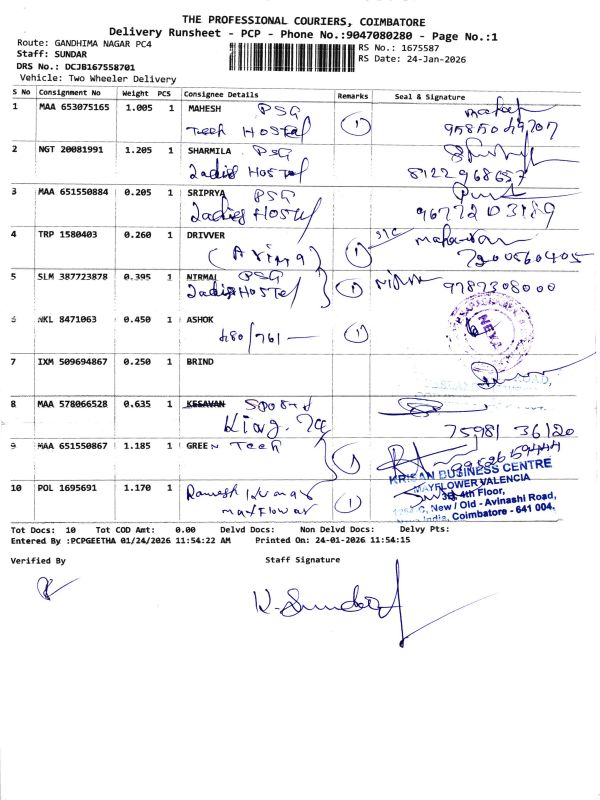 THE PROFESSIONAL COURIERS, COIMBATORE
Delivery Runsheet - PCP - Phone No.:9047080280 - Page No.:1
Route: GANDHIMA NAGAR PC4
Staff: SUNDAR
DRS No.: DCJB167558701
Vehicle: Two Wheeler Delivery
RS No.: 1675587
RS Date: 24-Jan-2026
S No Consignment No Weight PCS Consignee Details Remarks Seal & Signature
1 MAA 653075165 1.005 1 MAHESH PSG
Tech Hostel 1
2 NGT 20081991 1.205 1 SHARMILA PSG
Ladies Hostel 8122968657
3 MAA 651550884 0.205 1 SRIPRYA PSG
Ladies Hostel
4 TRP 1580403 0.260 1 DRIVVER
1 7200560405
5 SLM 387723878 0.395 1 NIRMAL PSG
Ladies Hostel 1 9787308000
6 NKL 8471063 0.450 1 ASHOK
480/761 1
7 IXM 509694867 0.250 1 BRIND
8 MAA 578066528 0.635 1 KESAVAN
75981 36120
9 MAA 651550867 1.185 1 GREEN Tech 1
KRISAN BUSINESS CENTRE
MAYFLOWER VALENCIA
10 POL 1695691 1.170 1 Ramesh Kumar 1
mayflower
4th Floor,
New / Old - Avinashi Road,
India, Coimbatore - 641 004.
Tot Docs: 10 Tot COD Amt: 0.00 Delvd Docs: Non Delvd Docs: Delvy Pts:
Entered By :PCPGEETHA 01/24/2026 11:54:22 AM Printed On: 24-01-2026 11:54:15
Verified By Staff Signature
K. Sundar